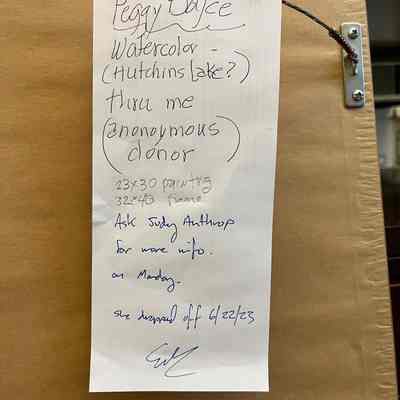 Peggy
Watercolor -
(Hutchins Lake?)
thru me
(anonoymous
donor)
23x30 painting
32x40 frame
Ask Judy Anthrop
for more info.
on Monday.
she dropped off 6/22/23